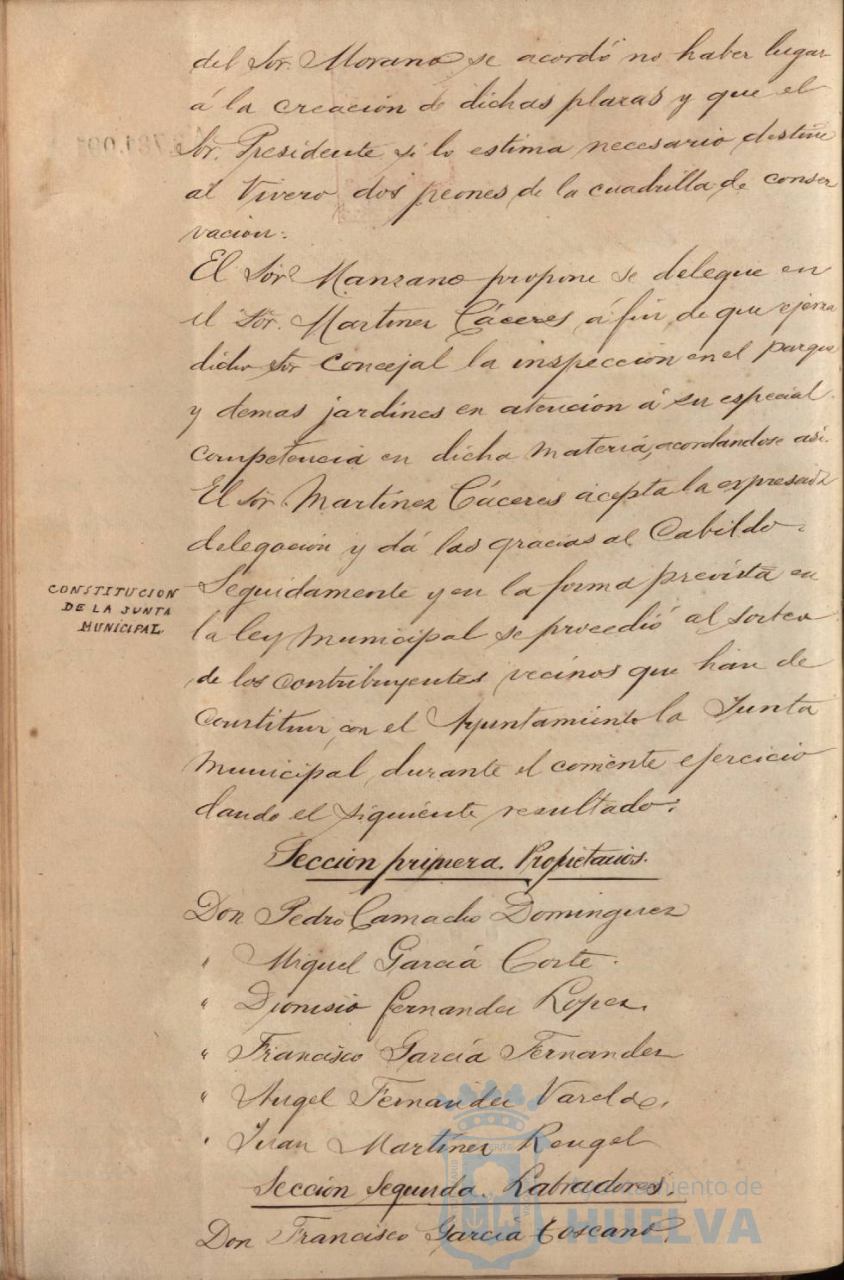 del Sor. Morano se acordó no haber lugar
á la creacion de dichas plazas y que el
Sor. Presidente si lo estima necesario destine
al Vivero dos peones de la cuadrilla de conser
vacion.
El Sor. Manzano propone se delegue en
el Sor. Martinez Cáceres á fin de que ejerza
dicho Sor Concejal la inspección en el parque
y demas jardines en atencion á su especial
competencia en dicha materia, acordandose así.
El Sor. Martínez Cáceres acepta la expresada
delegación y dá las gracias al Cabildo.
CONSTITUCION
DE LA JUNTA
MUNICIPAL.
Seguidamente y en la forma prevista en
la ley Municipal se procedió al sorteo
de los contribuyentes vecinos que han de
constituir, con el Ayuntamiento la Junta
Municipal durante el corriente ejercicio
dando el siguiente resultado:
Sección primera. Propietarios.
Don Pedro Camacho Dominguez
" Miguel García Corte.
" Dionisio Fernandez Lopez.
" Francisco García Fernandez
" Angel Fernandez Varela.
" Juan Martínez Rengel
Sección Segunda. Labradores.
Don Francisco García Toscano.
Ayuntamiento de
HUELVA